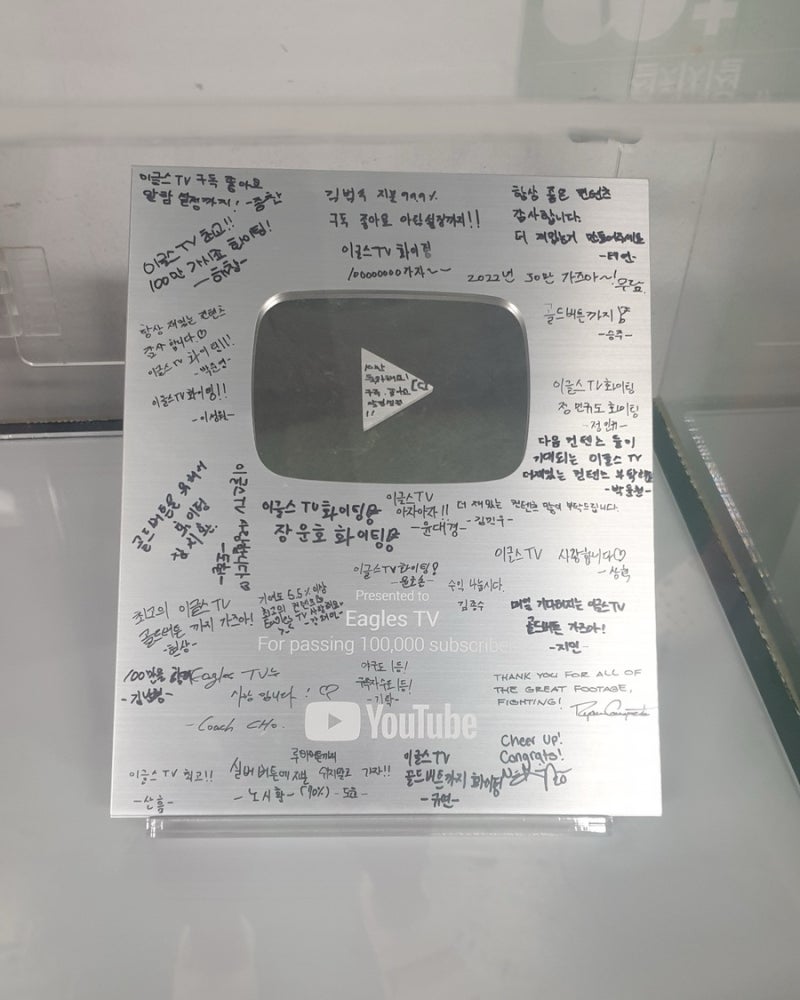 이글스TV 구독 좋아요
알람 설정까지!
김범수 지분 99.9%
구독 좋아요 알람설정까지!!
이글스TV 화이팅
10000000가자~~
항상 좋은 컨텐츠
감사합니다.
더 재밌는거 만들어주세요
-태연-
이글스TV 최고!!
100만 가시죠 화이팅!
2022년 30만 가즈아~!
항상 재밌는 컨텐츠
감사합니다♡
이글스TV 화이팅!!!
이글스TV 화이팅!!
골드버튼까지
-승주-
10만
구독 좋아요
!!
이글스TV화이팅
정민규도 화이팅
-정민규-
다음 컨텐츠들이
기대되는 이글스TV
더재밌는 컨텐츠 부탁해요
골드버튼을 위하여
화이팅
이글스TV 사랑합니다
이글스TV 화이팅
장운호 화이팅
이글스TV
아자아자!!
-윤대경-
더 재밌는 컨텐츠 많이 부탁드립니다.
-김민우-
이글스TV화이팅
이글스TV 사랑합니다♡
-상혁-
수익 나눕시다.
김종수
최고의 이글스TV
골드버튼까지 가즈아!
-현상-
기여도 5.5%이상
최고의 컨텐츠
매일 기다려지는 이글스TV
골드버튼 가즈아!
-지연-
Presented to
Eagles TV
For passing 100,000 subscribers
100만을 향해
Eagles TV는
사랑 입니다!♡
-Coach CHo.
야구도 1등!
구독자수도 1등!
THANK YOU FOR ALL OF
THE GREAT FOOTAGE,
FIGHTING!
YouTube
Cheer Up!
Congrats!
이글스TV 최고!!
-산흠-
실버버튼에 지분
-노시환- (90%)
쉬지말고 가자!!
-도훈-
이글스TV
골드버튼까지 화이팅
-규연-